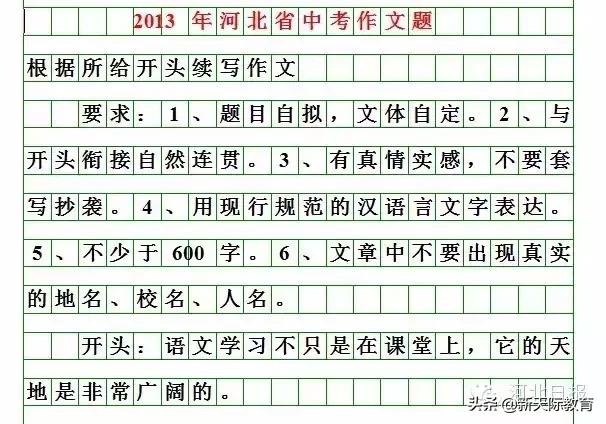 2013 年河北省中考作文题
根据所给开头续写作文
要求：1、题目自拟，文体自定。2、与
开头衔接自然连贯。3、有真情实感，不要套
写抄袭。4、用现行规范的汉语言文字表达。
5、不少于 600 字。6、文章中不要出现真实
的地名、校名、人名。
开头：语文学习不只是在课堂上，它的天
地是非常广阔的。
河北日报
头条 @新天际教育